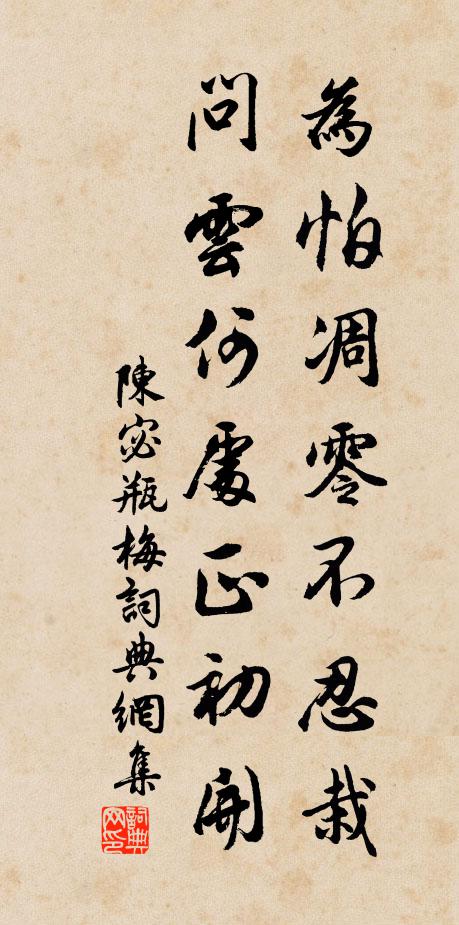 為怕凋零不忍栽
問雲何處正初開
陳宓瓶梅詞典網集
詞典网印